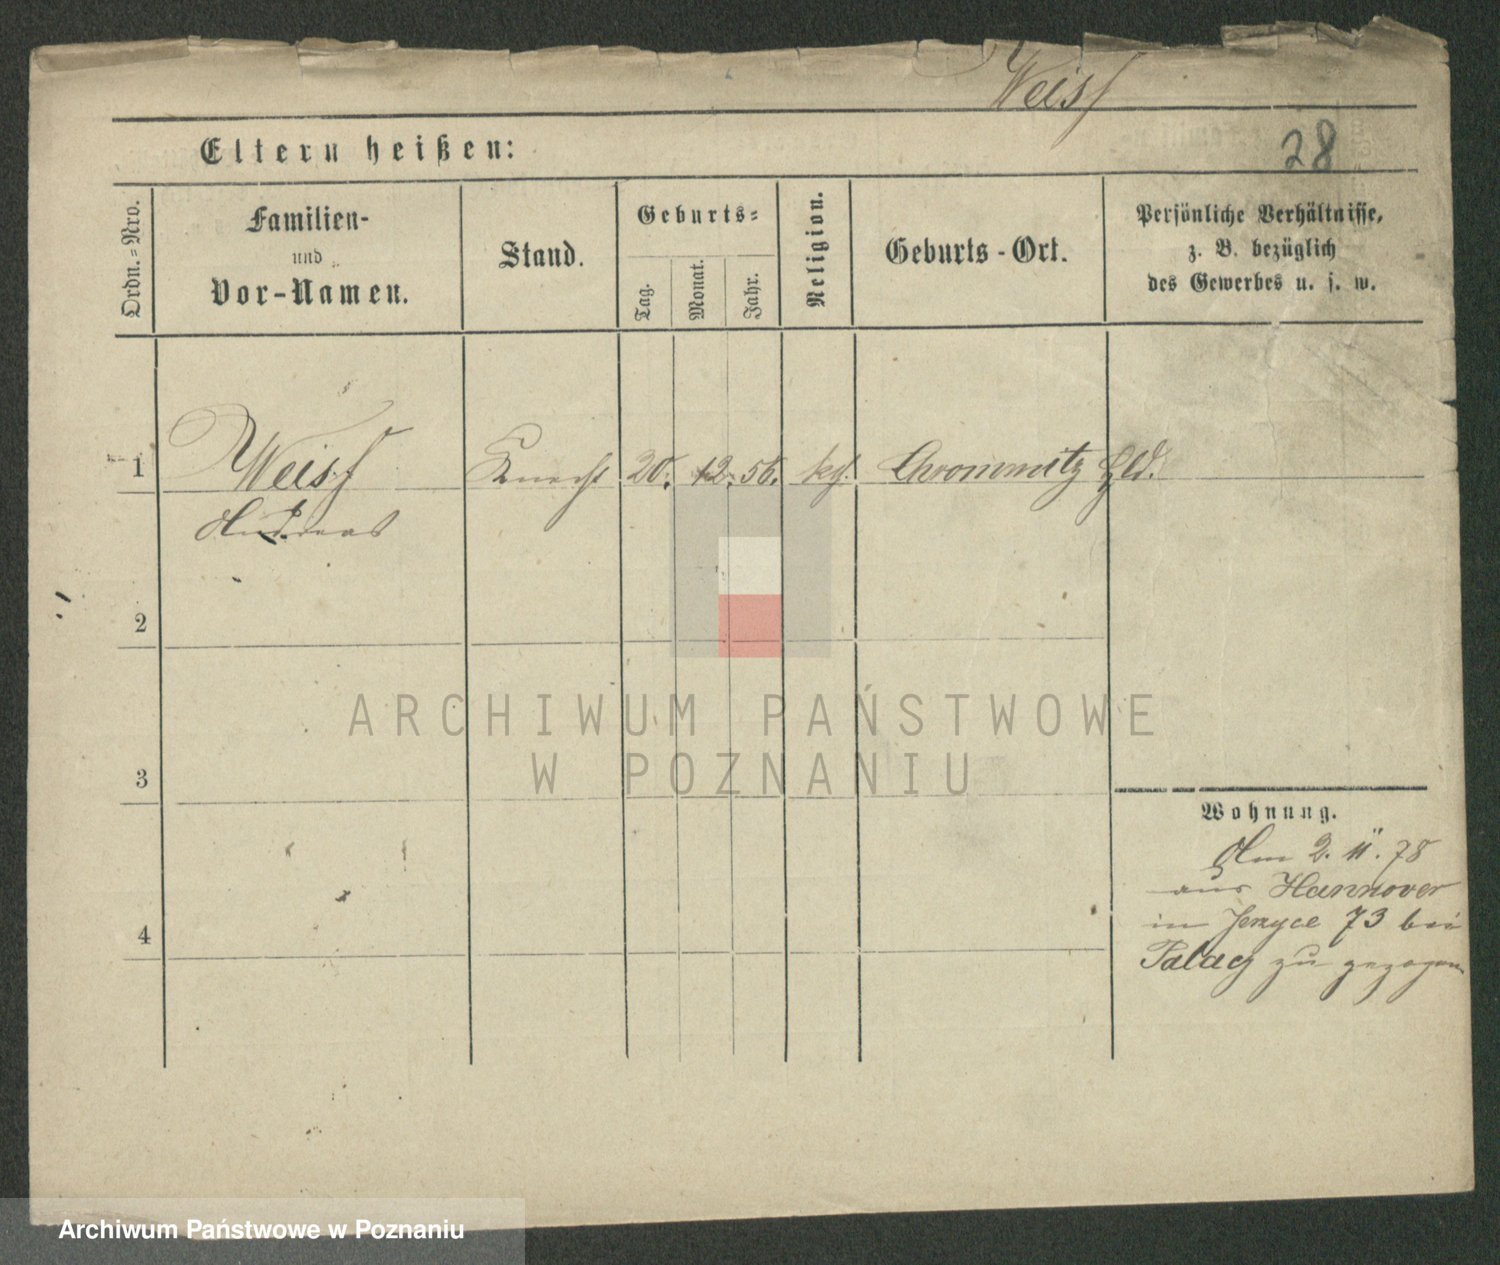 Weiss
28
Eltern heißen:
Ordn.-Nro.
Familien-
und
Vor-Namen.
Stand.
Geburts-
Tag.
Monat.
Jahr.
Religion.
Geburts-Ort.
Persönliche Verhältnisse,
z. B. bezüglich
des Gewerbes u. s. w.
1 Weiss Knecht 20. 12. 56. kth. Chrommitz
Andreas
2
3
4
Wohnung.
Am 2. 11. 78
aus Hannover
in Jerzyce 73 bei
Palacz zu gezogen
ARCHIWUM PAŃSTWOWE
W POZNANIU
Archiwum Państwowe w Poznaniu